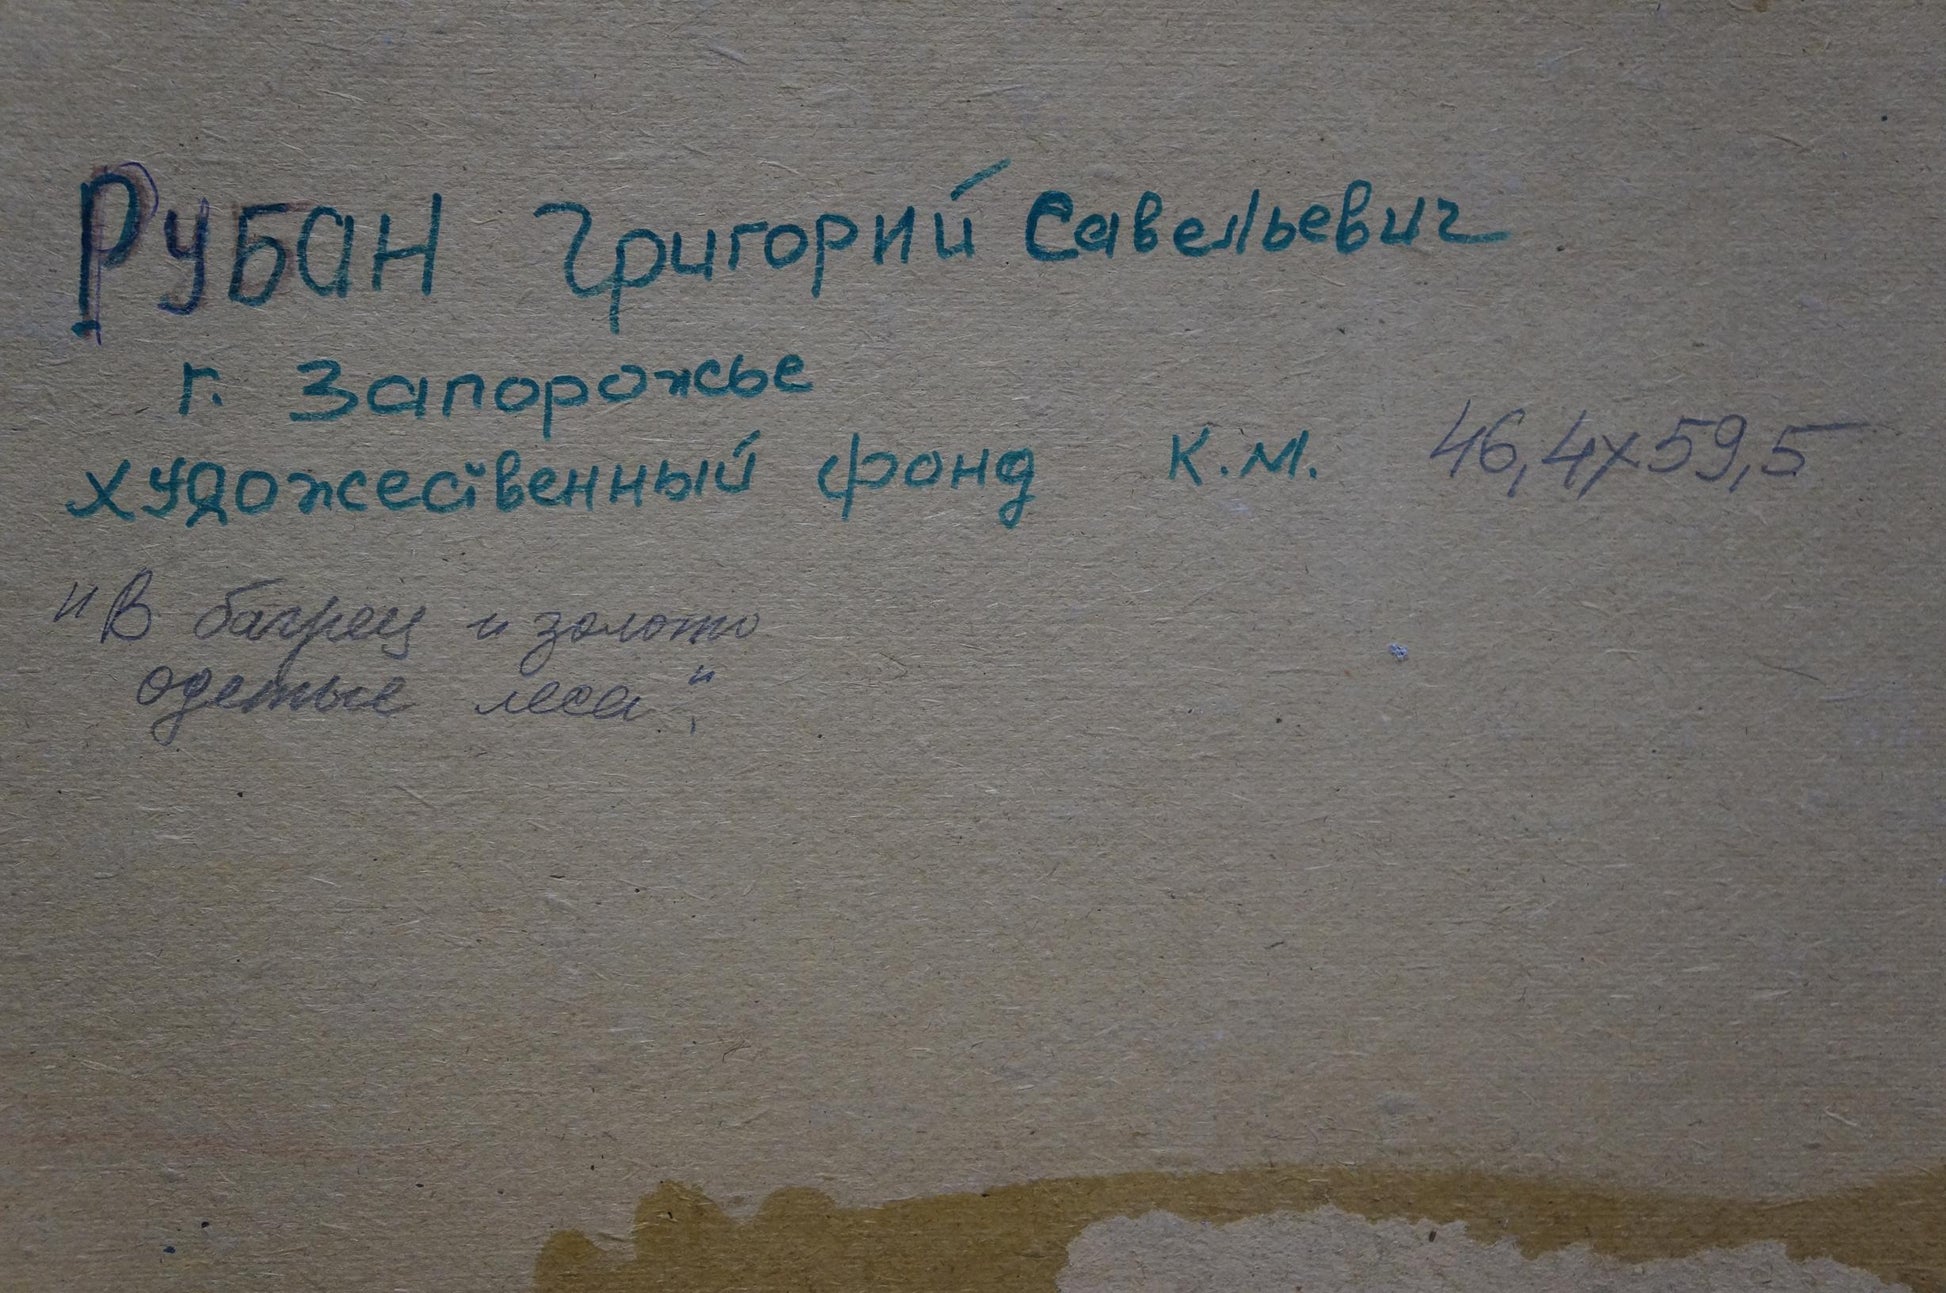 Рубан Григорий Савельевич
г. Запорожье
художественный фонд к.м. 46,4х59,5
"В багрец и золото
одетые леса".